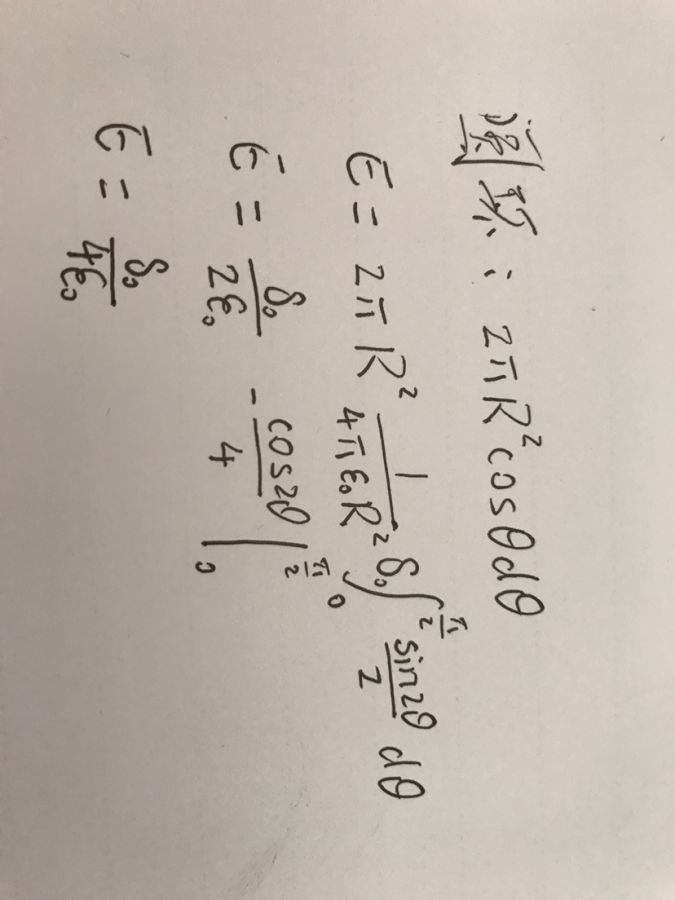 圆环: 2πR²cosθdθ
E = 2πR² \frac{1}{4πε₀R²} δ₀ ∫₀^{\frac{π}{2}} \frac{sin2θ}{2} dθ
E = \frac{δ₀}{2ε₀} -\frac{cos2θ}{4} |₀^{\frac{π}{2}}
E = \frac{δ₀}{4ε₀}